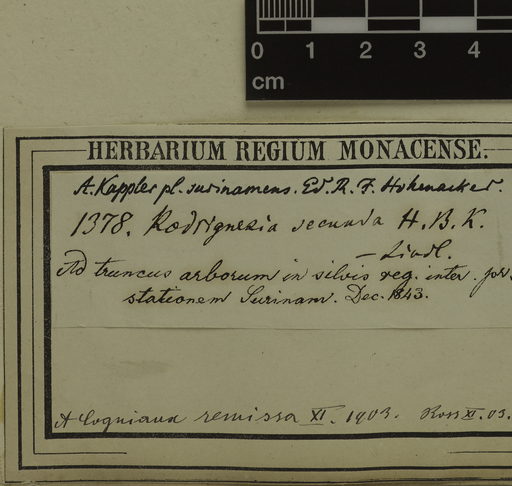 0 1 2 3 4
cm
HERBARIUM REGIUM MONACENSE.
A. Kappler pl. surinamens. Ed. R. F. Hohenacker.
1378. Rodriguezia secunda H. B. K.
– Lindl.
Ad truncus arborum in silvis reg. inter. pr.
stationem Surinam. Dec. 1843.
A Cogniaux remissa XI. 1903. Ross XI. 03.